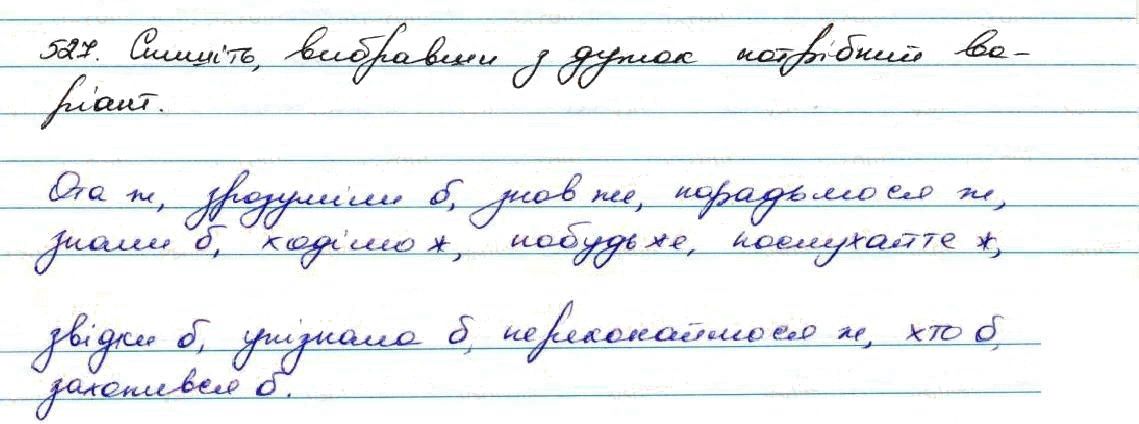 527. Спишіть, вибравши з дужок потрібний ва-
ріант.
Ота ж, зрозуміли б, знов же, порадьмося ж,
знали б, ходімо ж, побудь же, послухайте ж,
звідки б, упізнала б, переконаймося ж, хто б,
захопився б.